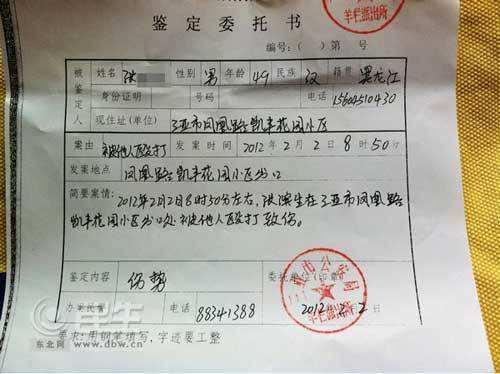 羊栏派出所
鉴定委托书
编号：（ ）第 号
被鉴定人 姓名 洪 性别 男 年龄 49 民族 汉 籍贯 黑龙江
身份证明 号码 电话 15604510430
现住址(单位) 三亚市凤凰路凯丰花园小区
案由 被他人殴打 发案时间 2012年2月2日8时50分
发案地点 凤凰路凯丰花园小区出口
简要案情：
2012年2月2日8时50分左右，洪滨生在三亚市凤凰路
凯丰花园小区出口处被他人殴打致伤。
鉴定内容 伤势 委托单位
市公安局
羊栏派出所
办案民警 电话 88341388 2012年2月2日
要求：用钢笔填写，字迹要工整
东北网 www.dbw.cn